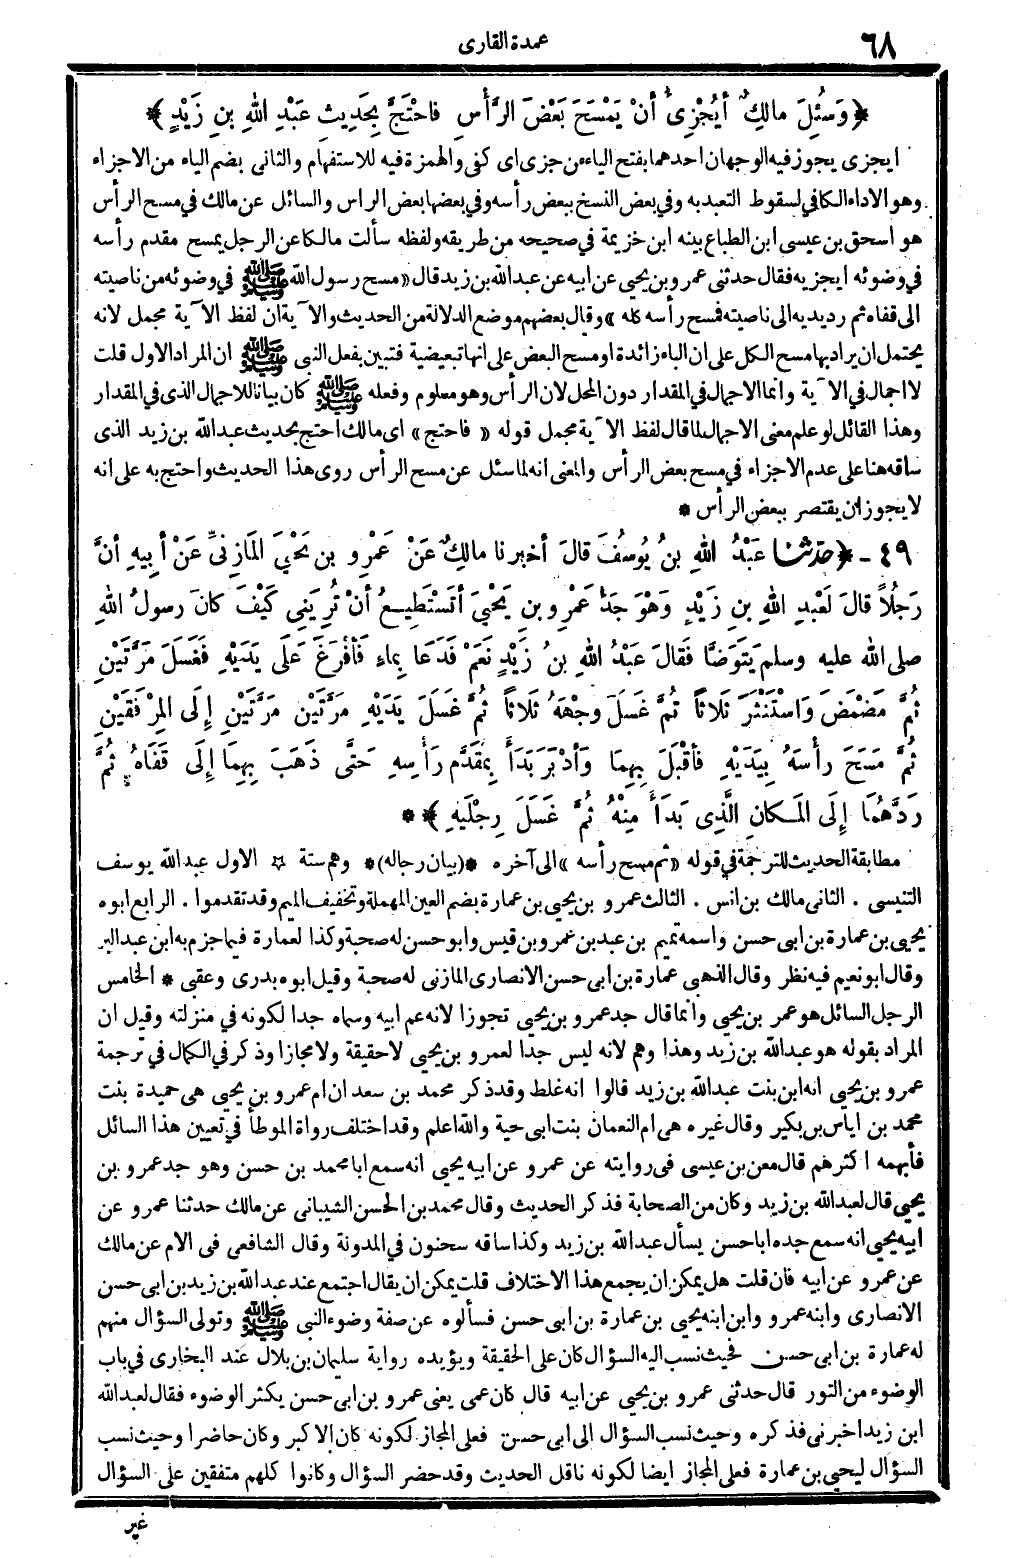 ٦٨
عمدة القارى
﴿ وَسُئِلَ مالِكٌ أَيُجْزِىُٔ أنْ يَمْسَحَ بَعْضَ الرَّأْسِ فاحْتَجَّ بِحَدِيثِ عَبْدِ اللهِ بنِ زَيْدٍ ﴾
ايجزى يجوز فيه الوجهان احدهما بفتح الياء من جزى اى كفى والهمزة فيه للاستفهام والثانى بضم الياء من الاجزاء
وهو الاداء الكافى لسقوط التعبد به وفى بعض النسخ ببعض رأسه وفى بعضها بعض الراس والسائل عن مالك فى مسح الرأس
هو اسحق بن عيسى ابن الطباع بينه ابن خزيمة فى صحيحه من طريقه ولفظه سألت مالكا عن الرجل يمسح مقدم رأسه
فى وضوئه ايجزيه فقال حدثنى عمرو بن يحيى عن ابيه عن عبدالله بن زيد قال «مسح رسول الله ﷺ فى وضوئه من ناصيته
الى قفاه ثم رد يديه الى ناصيته فمسح رأسه كله» وقال بعضهم موضع الدلالة من الحديث والآية ان لفظ الآية مجمل لانه
يحتمل ان يراد بها مسح الكل على ان الباء زائدة او مسح البعض على انها تبعيضية فتبين بفعل النبى ﷺ ان المراد الاول قلت
لا اجمال فى الآية وانما الاجمال فى المقدار دون المحل لان الرأس وهو معلوم وفعله ﷺ كان بيانا للاجمال الذى فى المقدار
وهذا القائل لو علم معنى الاجمال لما قال لفظ الآية مجمل قوله «فاحتج» اى مالك احتج بحديث عبدالله بن زيد الذى
ساقه هنا على عدم الاجزاء فى مسح بعض الرأس والمعنى انه لما سئل عن مسح الرأس روى هذا الحديث واحتج به على انه
لا يجوز ان يقتصر ببعض الرأس *
٤٩ - ﴿ حدثنا عَبْدُ اللهِ بنُ يُوسُفَ قالَ أخبرنا مالِكٌ عَنْ عَمْرِو بنِ يَحْيَى المَازِنىِّ عَنْ أبِيهِ أنَّ
رَجُلاً قالَ لَعْبدِ اللهِ بنِ زَيْدٍ وَهْوَ جَدُّ عَمْرِو بنِ يَحْيَى أتَسْتَطِيعُ أنْ تُرِيَنِى كَيْفَ كانَ رسولُ اللهِ
صلى الله عليه وسلم يَتَوَضَّأُ فقالَ عَبْدُ اللهِ بنُ زَيْدٍ نَعَمْ فَدَعَا بِماءٍ فَأَفْرَغَ عَلَى يَدَيْهِ فَغَسَلَ مَرَّتَيْنِ
ثُمَّ مَضْمَضَ وَاسْتَنْثَرَ ثَلاثاً ثُمَّ غَسَلَ وجْهَهُ ثَلاثاً ثُمَّ غَسَلَ يَدَيْهِ مَرَّتَيْنِ مَرَّتَيْنِ إِلَى المِرْفَقَيْنِ
ثُمَّ مَسَحَ رأسَهُ بِيَدَيْهِ فأقْبَلَ بِهِمَا وَأدْبَرَ بَدَأَ بِمُقَدَّمِ رَأسِهِ حَتَّى ذَهَبَ بِهِمَا إِلَى قَفَاهُ ثُمَّ
رَدَّهُمَا إِلَى المَكانِ الَّذِى بَدَأَ مِنْهُ ثُمَّ غَسَلَ رِجْلَيْهِ ﴾ *
مطابقة الحديث للترجمة فى قوله «ثم مسح رأسه» الى آخره *(بيان رجاله)* وهم ستة ☆ الاول عبدالله يوسف
التنيسى . الثانى مالك بن انس . الثالث عمرو بن يحيى بن عمارة بضم العين المهملة وتخفيف الميم وقد تقدموا . الرابع ابوه
يحيى بن عمارة بن ابى حسن واسمه تميم بن عبد بن عمرو بن قيس وابو حسن له صحبة وكذا لعمارة فيما جزم به ابن عبدالبر
وقال ابو نعيم فيه نظر وقال الذهبى عمارة بن ابى حسن الانصارى المازنى له صحبة وقيل ابوه بدرى وعقبى * الخامس
الرجل السائل هو عمر بن يحيى وانما قال جد عمرو بن يحيى تجوزا لانه عم ابيه وسماه جدا لكونه فى منزلته وقيل ان
المراد بقوله هو عبدالله بن زيد وهذا وهم لانه ليس جدا لعمرو بن يحيى لا حقيقة ولا مجازا وذكر فى الكمال فى ترجمة
عمرو بن يحيى انه ابن بنت عبدالله بن زيد قالوا انه غلط وقد ذكر محمد بن سعد ان ام عمرو بن يحيى هى حميدة بنت
محمد بن اياس بن بكير وقال غيره هى ام النعمان بنت ابى حية والله اعلم وقد اختلف رواة الموطأ فى تعيين هذا السائل
فأبهمه اكثرهم قال معن بن عيسى فى روايته عن عمرو عن ابيه يحيى انه سمع ابا محمد بن حسن وهو جد عمرو بن
يحيى قال لعبدالله بن زيد وكان من الصحابة فذكر الحديث وقال محمد بن الحسن الشيبانى عن مالك حدثنا عمرو عن
ابيه يحيى انه سمع جده ابا حسن يسأل عبدالله بن زيد وكذا ساقه سحنون فى المدونة وقال الشافعى فى الام عن مالك
عن عمرو عن ابيه فان قلت هل يمكن ان يجمع هذا الاختلاف قلت يمكن ان يقال اجتمع عند عبدالله بن زيد بن ابى حسن
الانصارى وابنه عمرو وابن ابنه يحيى بن عمارة بن ابى حسن فسألوه عن صفة وضوء النبى ﷺ وتولى السؤال منهم
له عمارة بن ابى حسن فحيث نسب اليه السؤال كان على الحقيقة ويؤيده رواية سليمان بن بلال عند البخارى فى باب
الوضوء من التور قال حدثنى عمرو بن يحيى عن ابيه قال كان عمى يعنى عمرو بن ابى حسن يكثر الوضوء فقال لعبدالله
ابن زيد اخبرنى فذكره وحيث نسب السؤال الى ابى حسن فعلى المجاز لكونه كان الاكبر وكان حاضرا وحيث نسب
السؤال ليحيى بن عمارة فعلى المجاز ايضا لكونه ناقل الحديث وقد حضر السؤال وكانوا كلهم متفقين على السؤال
غير